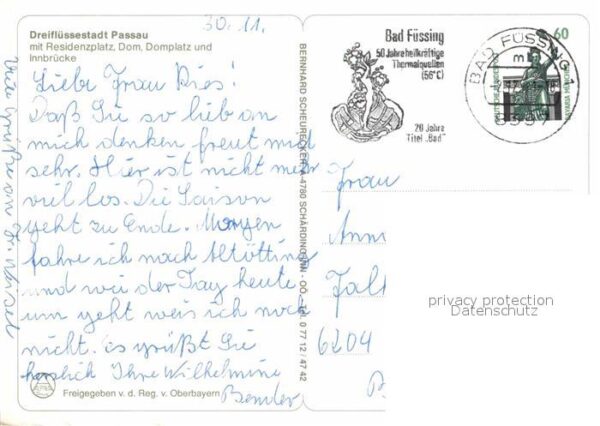 30.11.
Dreiflüssestadt Passau
mit Residenzplatz, Dom, Domplatz und
Innbrücke
Liebe Frau Ries!
Daß Sie so lieb an
mich denken freut mich
sehr. Hier ist nicht mehr
viel los. Die Saison
geht zu Ende. Morgen
fahre ich nach Altötting
und wie der Tag heute
um geht weis ich noch
nicht. es grüßt Sie
herzlich Ihre Wilhelmine
Bender
Viele Grüße an Fr.
Freigegeben v. d. Reg. v. Oberbayern
BERNHARD SCHEURECKER, A-4780 SCHÄRDING/INN - OÖ. - Tel. 0 77 12 / 47 42
Bad Füssing
50 Jahre heilkräftige
Thermalquellen
(56°C)
20 Jahre
Titel „Bad"
BAD FÜSSING 1
60
Frau
6204
privacy protection
Datenschutz